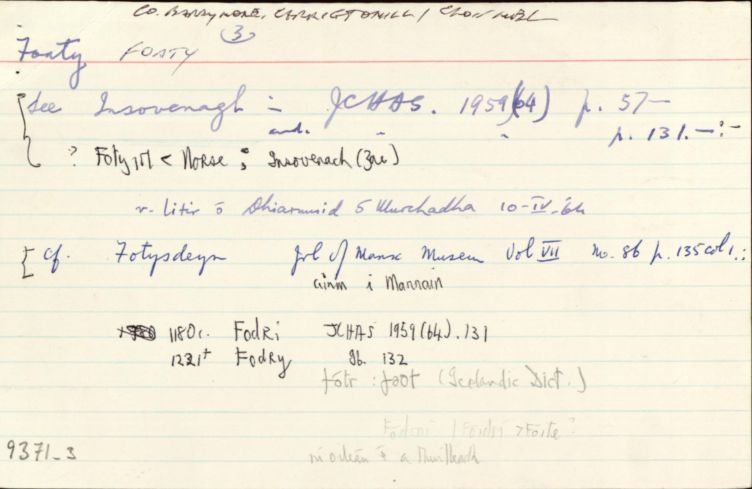 CO. BARRYMORE, CARRIGTOHILL / CLONMEL
3
Foaty FOATY
See Insovenagh - JCHAS. 1959(64) p. 57-
and. " " p. 131.-:-
? Fotyist < Norse ; Insovenach (Gae)
v. litir ó Dhiarmuid Ó Murchadha 10-IV-64
cf. Fotysdeyn Jrl of Manx Museum Vol VII No. 86 p. 135 col 1.:
ainm i Manainn
1180c. Fodri JCHAS 1959(64).131
1221+ Fodry Ib. 132
fótr : foot (Icelandic Dict.)
> Foite?
ní oileán é a
9371-3